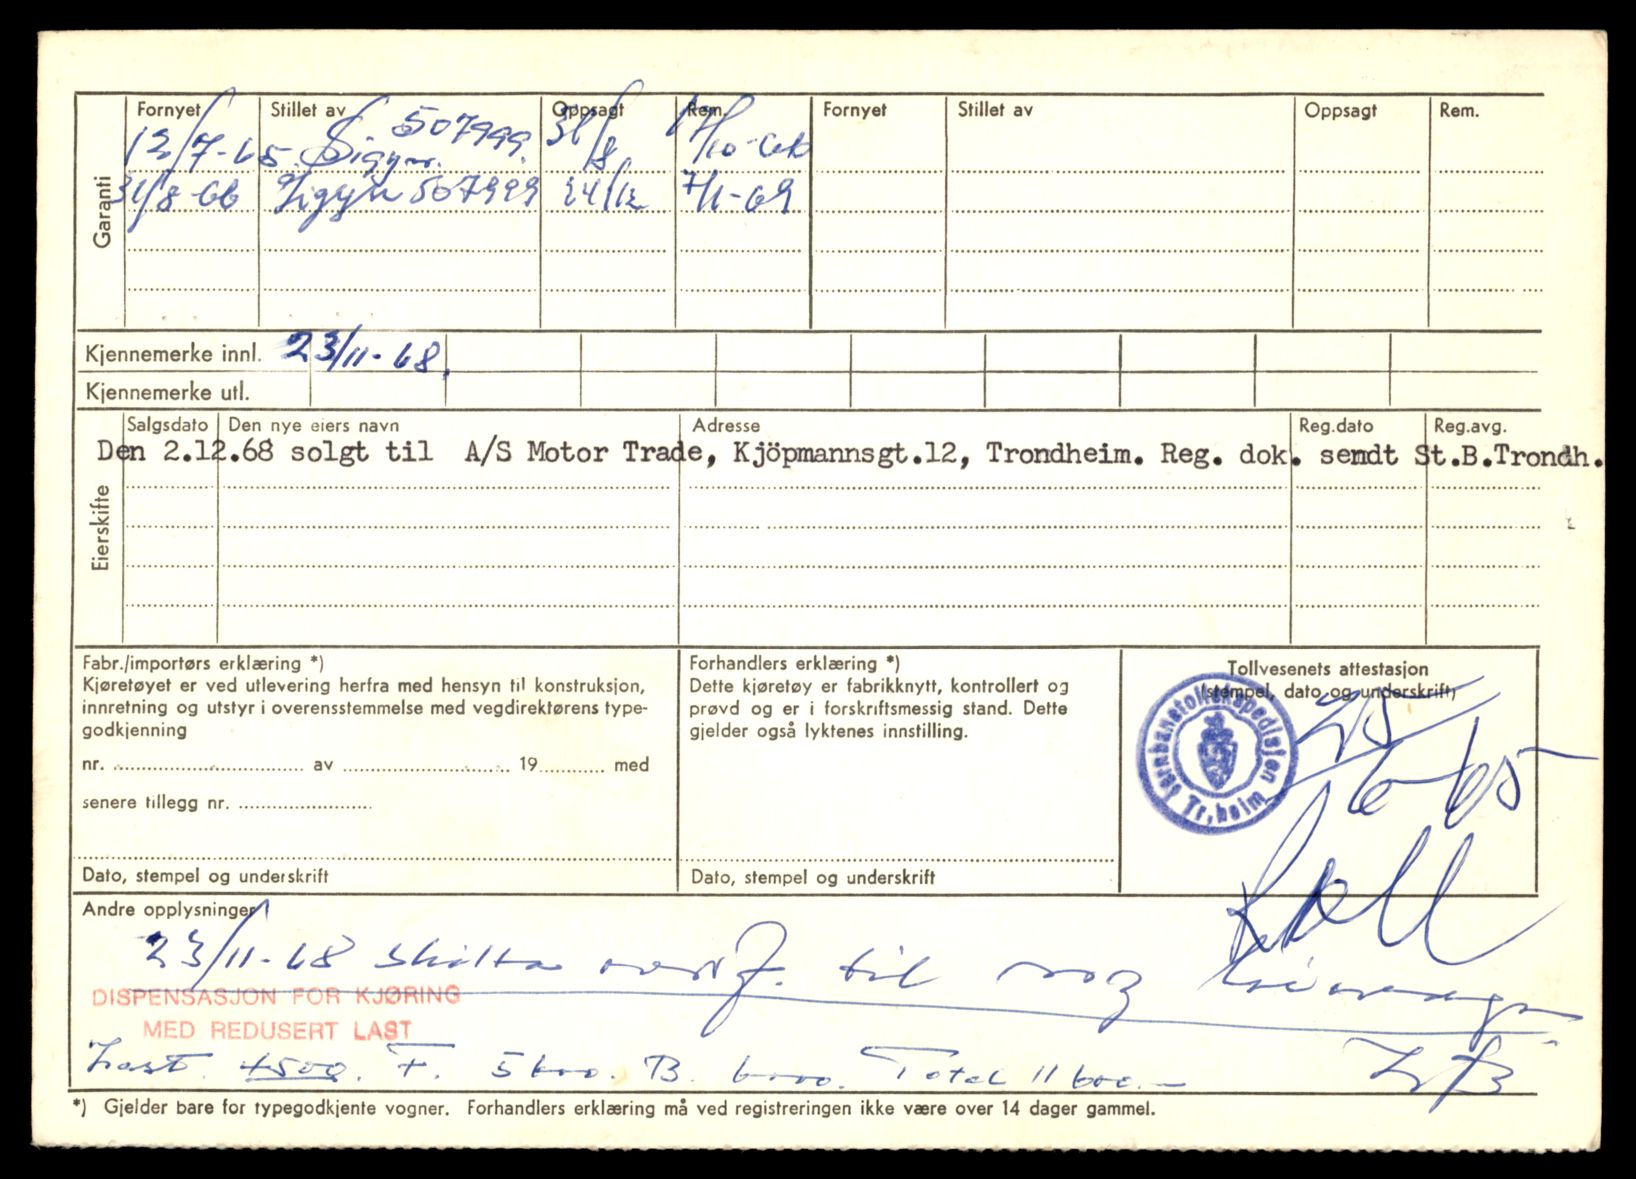 Garanti
Fornyet Stillet av Oppsagt Rem. Fornyet Stillet av Oppsagt Rem.
12/7-65. Sigyn. 507999. 31/8 17/10-66
31/8-66 Sigyn 507999 24/12 7/1-69
Kjennemerke innl. 23/11-68.
Kjennemerke utl.
Eierskifte
Salgsdato Den nye eiers navn Adresse Reg.dato Reg.avg.
Den 2.12.68 solgt til A/S Motor Trade, Kjöpmannsgt.12, Trondheim. Reg. dok. sendt St.B.Trondh.
Fabr./importørs erklæring *)
Kjøretøyet er ved utlevering herfra med hensyn til konstruksjon,
innretning og utstyr i overensstemmelse med vegdirektørens type-
godkjenning
nr. av 19 med
senere tillegg nr.
Dato, stempel og underskrift
Forhandlers erklæring *)
Dette kjøretøy er fabrikknytt, kontrollert og
prøvd og er i forskriftsmessig stand. Dette
gjelder også lyktenes innstilling.
Dato, stempel og underskrift
Tollvesenets attestasjon
(stempel, dato og underskrift)
Jernbanetollekspedisjonen Tr.heim
25
6-65
Andre opplysninger
23/11-68 skilta overf. til
DISPENSASJON FOR KJØRING
MED REDUSERT LAST
Last. 4500. F. 5600. B. 6000. Total 11600.-
*) Gjelder bare for typegodkjente vogner. Forhandlers erklæring må ved registreringen ikke være over 14 dager gammel.